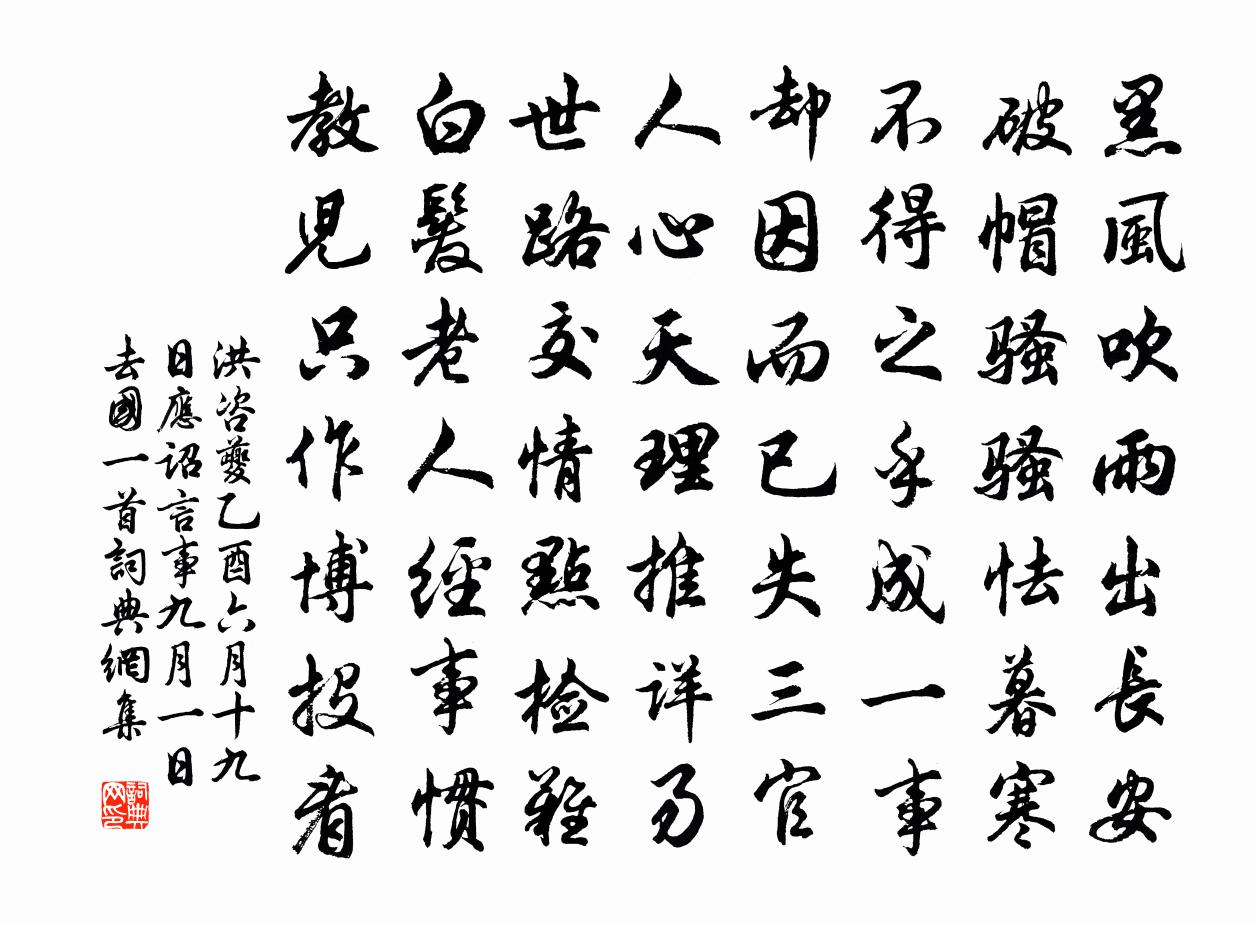 黑風吹雨出長安
破帽骚骚怯暮寒
不得之乎成一事
却因而已失三官
人心天理推详易
世路交情點检難
白髮老人經事惯
教児只作博投看
洪咨夔乙酉六月十九
日應詔言事九月一日
去國一首詞典網集
詞典网印